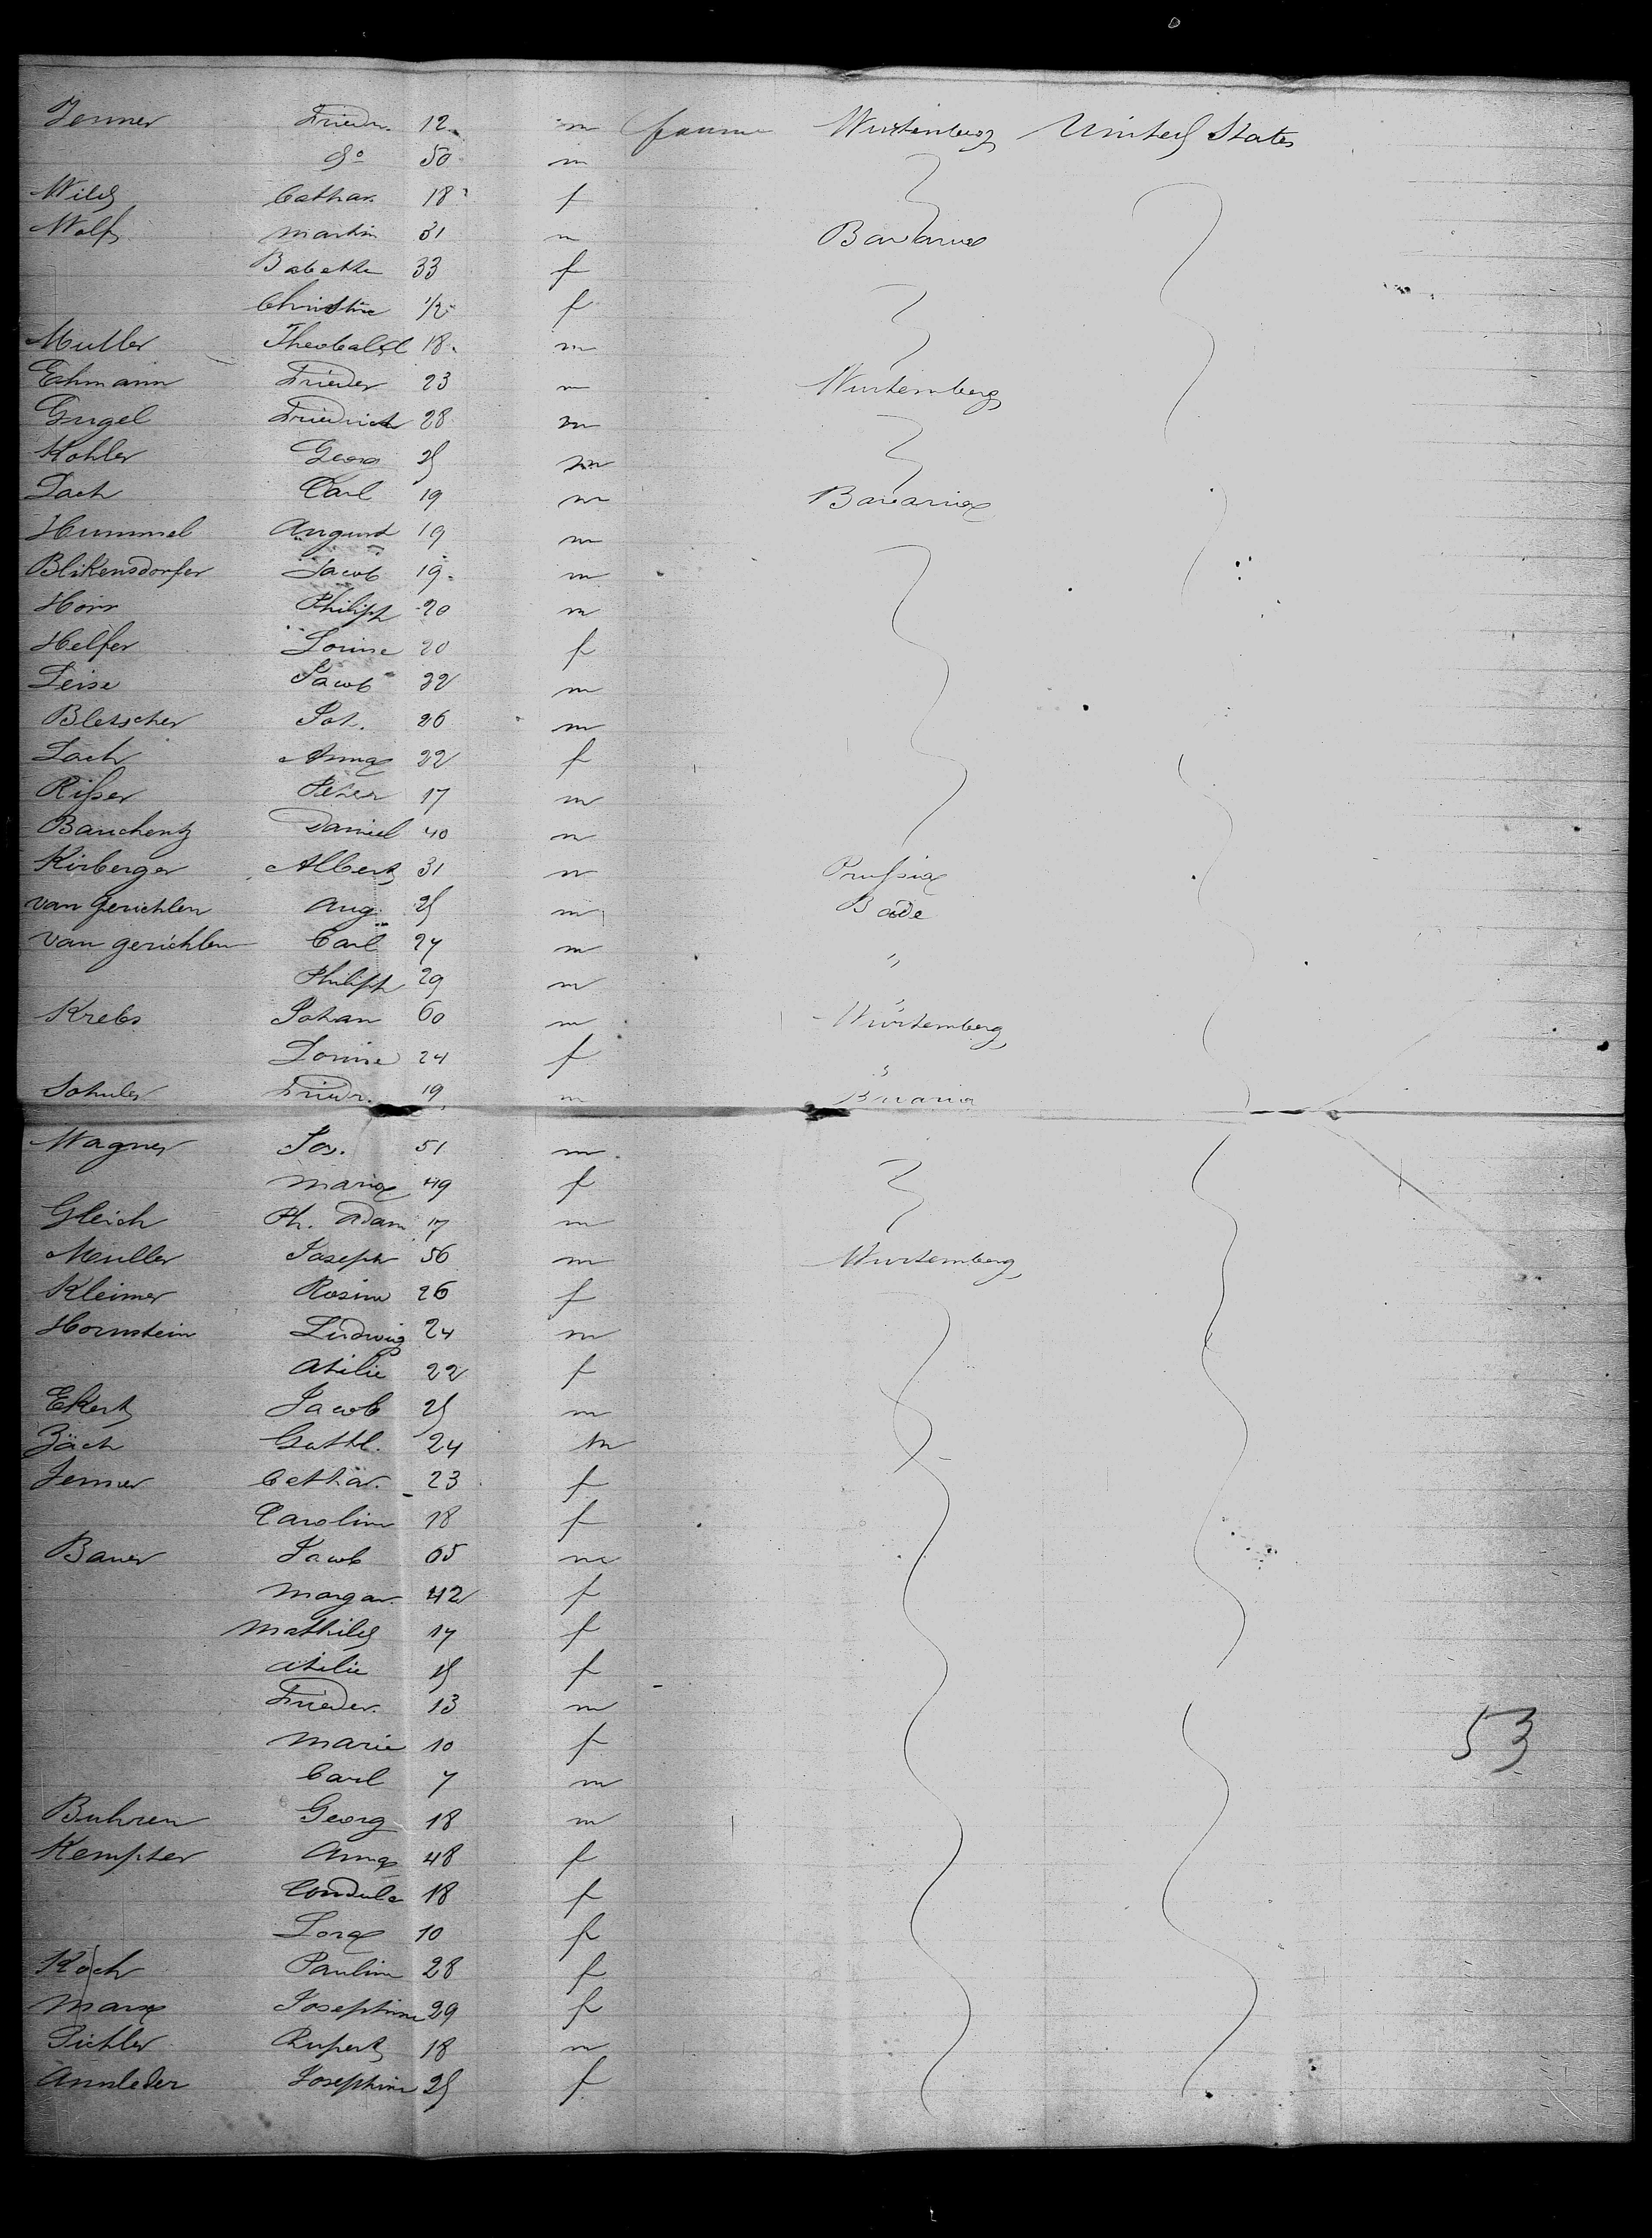 Jenner Friedr. 12 m farmer Wurtenberg United States
do 50 m
Wild Cathar. 18 f
Wolf Martin 31 m Bavaria
Babette 33 f
Christine 1/2 f
Muller Theobald 18 m
Ehmann Frieder 23 m Wurtemberg
Gugel Friedrich 28 m
Kohler Georg 25 m
Lach Carl 19 m Bavaria
Hummel August 19 m
Blikensdorfer Jacob 19 m
Horn Philiph 20 m
Helfer Louise 20 f
Leise Jacob 22 m
Bletscher Joh. 26 m
Lach Anna 22 f
Risser Peter 17 m
Bauchentz Daniel 40 m
Kirberger Albert 31 m Prussia
van Gerichten Aug. 25 m Bade
van gerichten Carl 27 m "
Philiph 29 m
Krebs Johan 60 m Würtemberg
Louise 24 f "
Schuler Friedr. 19 m Bavaria
Wagner Jos. 51 m
Maria 49 f
Gleich Ph. Adam 17 m
Muller Joseph 56 m Wurtemberg
Kleimer Rosine 26 f
Hornstein Ludwig 24 m
Atilie 22 f
Ekert Jacob 25 m
Zäch Gottl. 24 m
Jenner Cathar. 23 f
Caroline 18 f
Bauer Jacob 65 m
Margar. 42 f
Mathild 17 f
Atilie 15 f
Frieder. 13 m
Marie 10 f
53
Carl 7 m
Buhren Georg 18 m
Kempter Anna 48 f
Condula 18 f
Lora 10 f
Koch Pauline 28 f
Marx Josephine 29 f
Pichler Rupert 18 m
Annleder Josephine 25 f